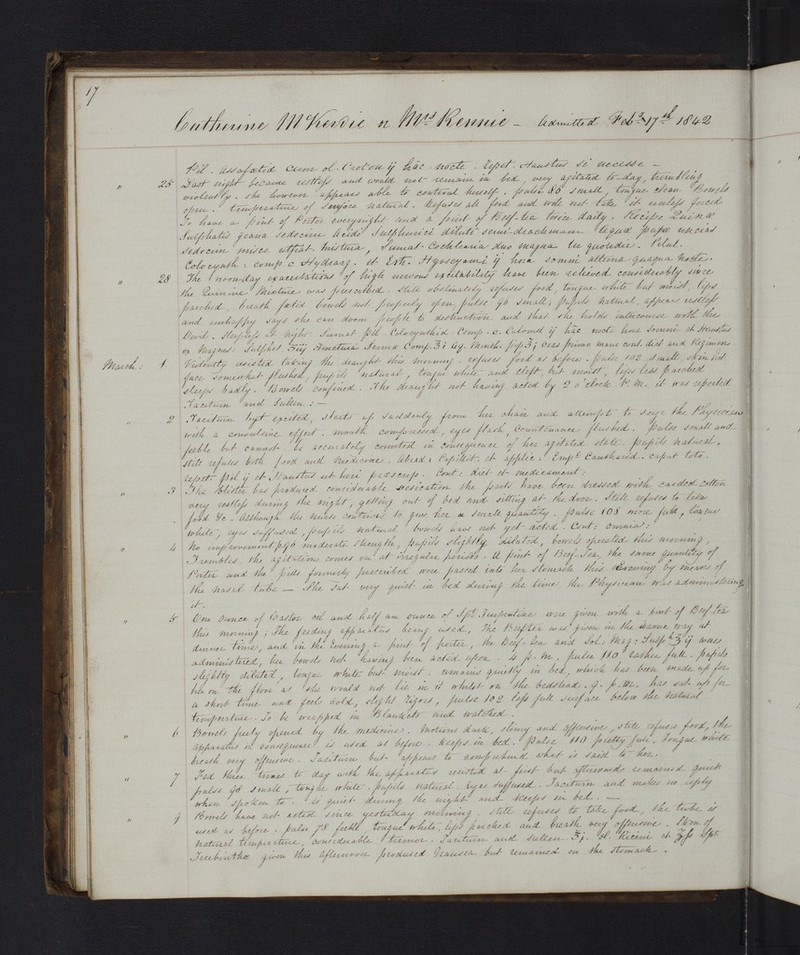 17
Catherine McKenzie or Mrs Rennie - Admitted Feby 17th 1842
Pil. Assafoetid cum ol. Croton ij hac nocte. Repet. Haustus si necesse -
" 25 Last night became restless and would not remain in bed, very agitated to-day, trembling
violently. she however appears able to control herself. pulse 86 small, tongue clean Bowels
open. temperature of surface natural. Refuses all food and will not take it unless forced
To have a pint of Porter every night and a pint of Beef-tea twice daily. Recipe Quinæ
Sulphatis grana sedecim Acidi Sulphurici diluti semi-drachmam Aquæ puræ uncias
sedecim misce utfiat mistura, Sumat Cochlearia duo magna ter quotidie. Pilul.
Colocynth: comp: c Hydrarg. et Extr. Hyoscyami ij hora somni alterna quaqua nocte.
" 28 The noon-day exacerbations of high nervous excitability have been relieved considerably since
the Quinine Mixture was prescribed. Still obstinately refuses food, tongue white but moist, lips
parched, breath fœtid bowels not properly open, pulse 96 small, pupils natural, appears restless
and unhappy says she can doom people to destruction and that she holds intercourse with the
Devil. Sleepless at night. Sumat Pil Colocynthid Comp. c. Calomel ij hac nocte hora Somni et Haustus
Magnes: Sulphat. Tinctura Sennæ Comp. ʒi Aq. Menth. pip. cras primo mane cont. diet and Regimen
March: 1. Violently resisted taking the draught this morning. refuses food as before. pulse 102 small, skin hot
face somewhat flushed, pupils natural, tongue white and cleft, but moist, lips less parched
sleeps badly. Bowels confined. The draught not having acted by 2 o'clock P.M. it was repeated
Taciturn and Sullen: -
" 2 Taciturn yet excited, starts up suddenly from her chair and attempts to seize the Physician
with a convulsive effort. mouth compressed, eyes flash, Countenance flushed. Pulse small and
feeble but cannot be accurately counted in consequence of her agitated state. pupils natural.
still refuses both food and medicine. Abrad: Capillit. et applic: Empl: Cantharid. caput toto.
repet: Pil ij et Haustus ut heri præscrip. Cont: diet et medicament:
" 3 The blister has produced considerable vesication the parts have been dressed with carded cotton
very restless during the night, getting out of bed and sitting at the door. Still refuses to take
food &c. Although the nurse contrives to give her a small quantity. pulse 108 more full, tongue
white, eyes suffused, pupils natural, bowels have not yet acted. Cont: omnia:
" 4 No improvement p. 96 moderate strength, pupils slightly dilated, bowels operated this morning,
Trembles, the agitation comes on at irregular periods. A pint of Beef-Tea, the same quantity of
Porter and the pills formerly prescribed were passed into her stomach this evening by means of
the nasal tube - She sat very quiet in bed during the time the Physician was administering
it.
" 5 One ounce of Castor oil and half an ounce of Spt. Turpentine were given with a pint of Beef tea
this morning; the feeding apparatus being used, The Beeftea was given in the same way at
dinner time, and in the Evening a pint of porter, the Beef-Tea and Sol: Mag: Sulph ʒij were
administered, her bowels not having been acted upon. 4 p.m. pulse 110 rather full. Pupils
slightly dilated, tongue white but moist. remains quietly in bed, which has been made up for
her on the floor as she would not lie in it whilst on the bedstead. 9. p.m. has sat up for
a short time and feels cold, slight rigors, pulse 102 less full surface below the natural
temperature. To be wrapped in Blankets and watched.
" 6 Bowels freely opened by the medicine. Motions dark, slimy and offensive, still refuses food, the
apparatus in consequence is used as before. Keeps in bed. Pulse 110 pretty full. Tongue white
breath very offensive. Taciturn but appears to comprehend what is said to her.
" 7 Fed three times to day with the apparatus resisted at first but afterwards remained quiet
pulse 98 small, tongue white. pupils natural. Eyes suffused. Taciturn and makes no reply
when spoken to. is quiet during the night and keeps in bed. -
" 9 Bowels have not acted since yesterday morning. still refuses to take food, the tube is
used as before. pulse 78 feeble, tongue white, lips parched and breath very offensive. Skin of
natural temperature, considerable tremor. Taciturn and sullen. ʒj. Ol. Ricini et ʒfs Spt.
Terebinthæ given this afternoon produced Nausea but remained on the stomach.